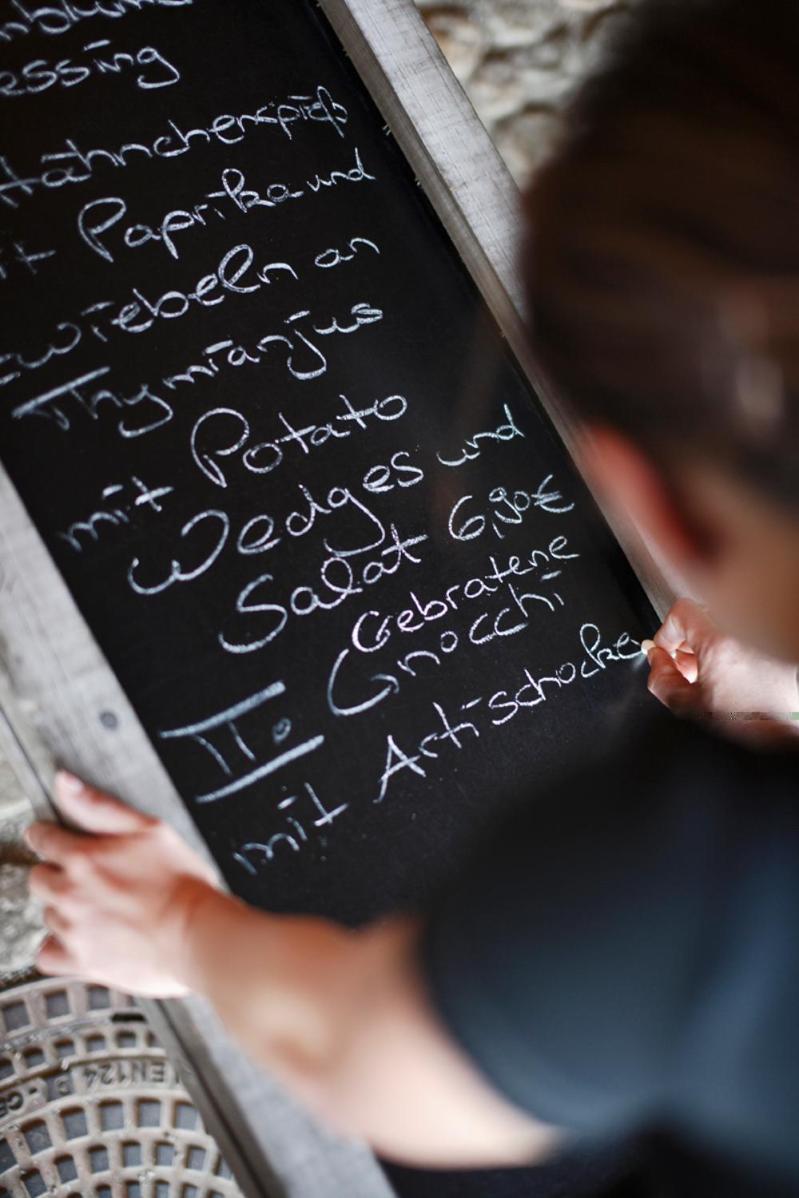 essing
Hähnchenspieß
it Paprika und
zwiebeln an
Thymianjus
mit Potato
Wedges und
Salat 6,90€
II. Gebratene
Gnocchi
mit Artischocke
EN124